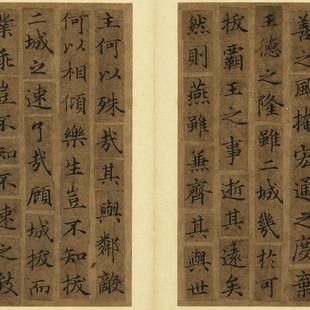 善之風掩宏通之度棄
王德之隆雖二城幾於可
拔霸王之事逝其遠矣
然則燕雖兼齊其與世
主何以殊哉其與鄰敵
何以相傾樂生豈不知拔
二城之速了哉顧城拔而
業乖豈不知不速之致